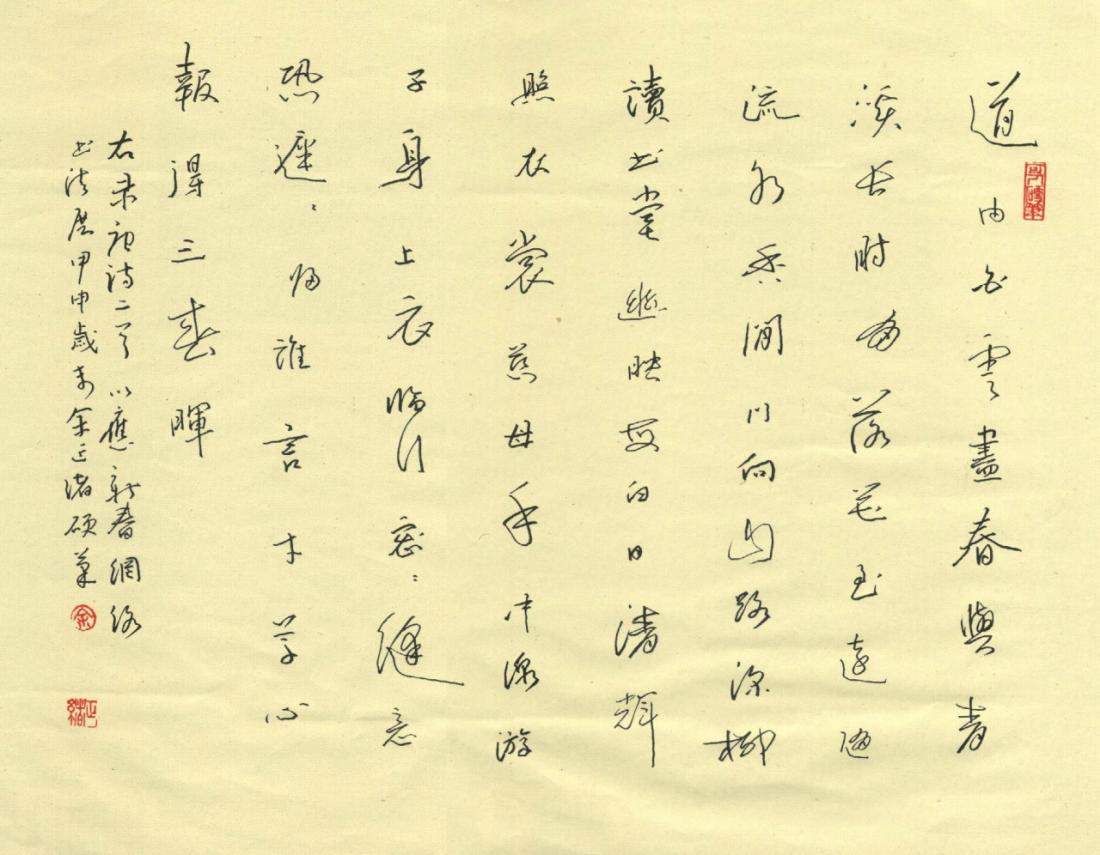 道由白雲盡春與青
溪长时有落花至遠随
流水香閒门向山路深柳
讀书堂幽映每白日清輝
照衣裳慈母手中線游
子身上衣臨行密：縫意
恐遲：归誰言寸草心
報得三春暉
右录唐诗二首以應新春網络
书法展甲申歲末金正渚硕筆
金